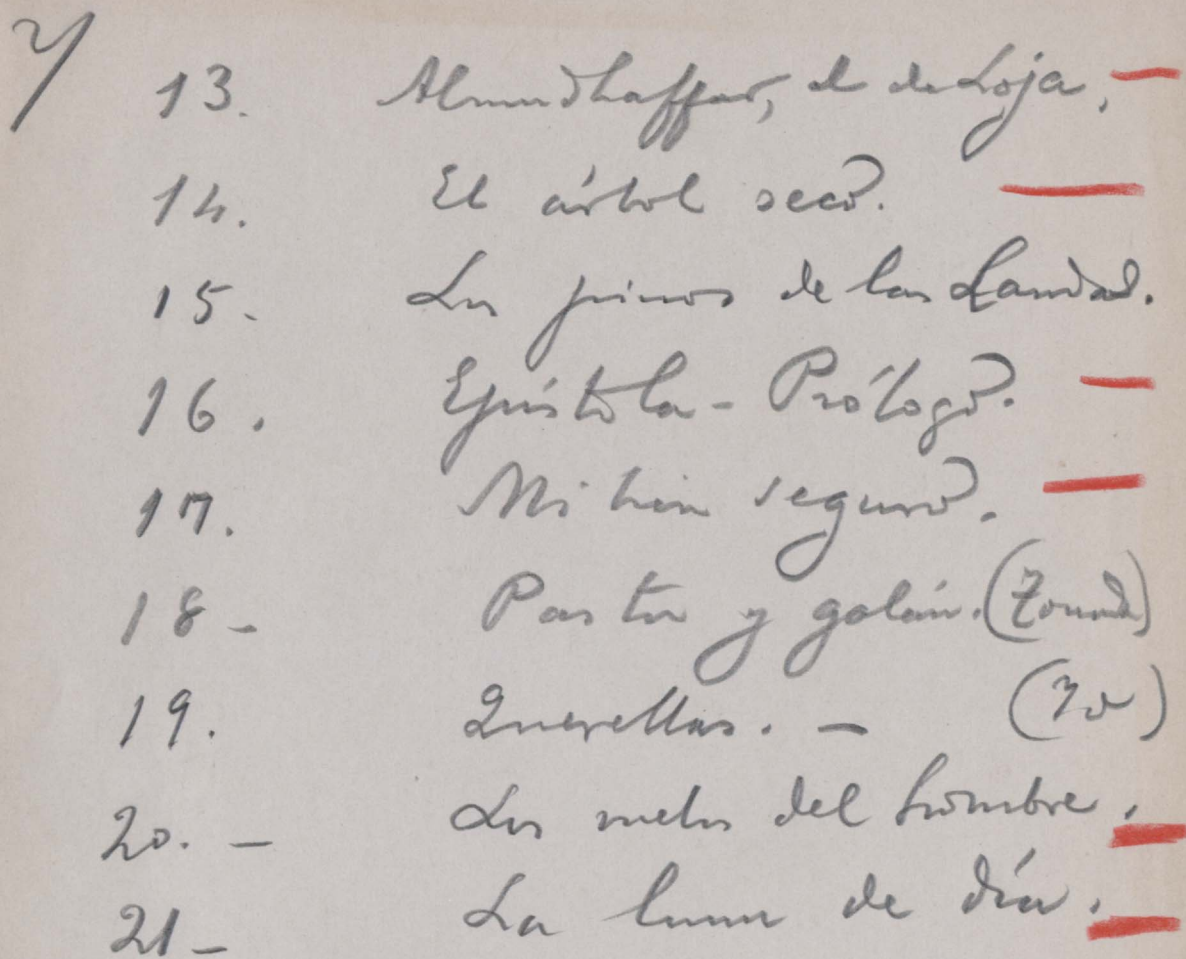 y
13. Almudhaffar, el de Loja.
14. El árbol seco.
15. Los pinos de las Landas.
16. Epístola-Prólogo.
17. Mi bien seguro.
18 - Pastor y galán. (Tonada)
19. Querellas. - (Yo)
20. - Los vuelos del hombre.
21 - La luna de día.